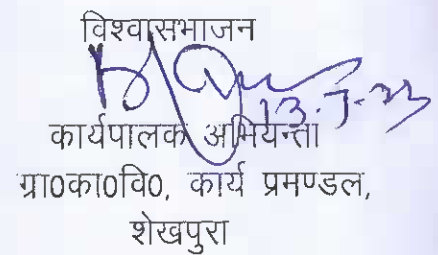 विश्वासभाजन
13.7.23
कार्यपालक अभियन्ता
ग्रा0का0वि0, कार्य प्रमण्डल,
शेखपुरा